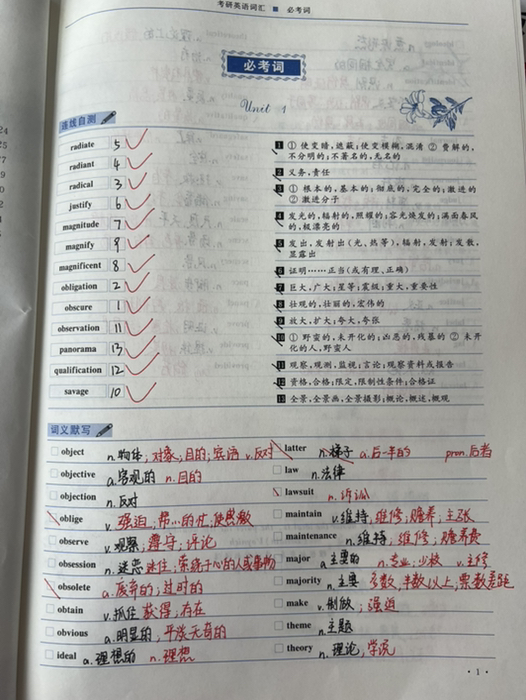 考研英语词汇 ■ 必考词
必考词
Unit 1
连线自测
radiate 5
radiant 4
radical 3
justify 6
magnitude 7
magnify 9
magnificent 8
obligation 2
obscure 1
observation 11
panorama 13
qualification 12
savage 10
1 ① 使变暗,遮蔽;使变模糊,混淆 ② 费解的,
不分明的;不著名的,无名的
2 义务,责任
3 ① 根本的,基本的;彻底的,完全的;激进的
② 激进分子
4 发光的,辐射的,照耀的;容光焕发的;满面春风
的,极漂亮的
5 发出,发射出(光,热等),辐射,发射;发散,
显露出
6 证明……正当(或有理、正确)
7 巨大,广大;星等;震级;重大,重要性
8 壮观的,壮丽的,宏伟的
9 放大,扩大;夸大,夸张
10 ① 野蛮的,未开化的;凶恶的,残暴的 ② 未开
化的人,野蛮人
11 观察,观测,监视;言论;观察资料或报告
12 资格,合格;限定,限制性条件;合格证
13 全景,全景画,全景摄影;概论,概述,概观
词义默写
object n.物体;对象;目的;宾语 v.反对
objective a.客观的 n.目的
objection n.反对
oblige v.强迫;帮…的忙,使感激
observe v.观察;遵守;评论
obsession n.迷恋
obsolete a.废弃的;过时的
obtain v.抓住 获得;存在
obvious a.明显的,平淡无奇的
ideal a.理想的 n.理想
latter n.梯子 a.后一半的 pron.后者
law n.法律
lawsuit n.诉讼
maintain v.维持;维修;赡养;主张
maintenance n.维持;维修;赡养费
major a.主要的 n.专业;少校 v.主修
majority n.主要 多数,半数以上;票数差距
make v.制做;强迫
theme n.主题
theory n.理论;学说
· 1 ·